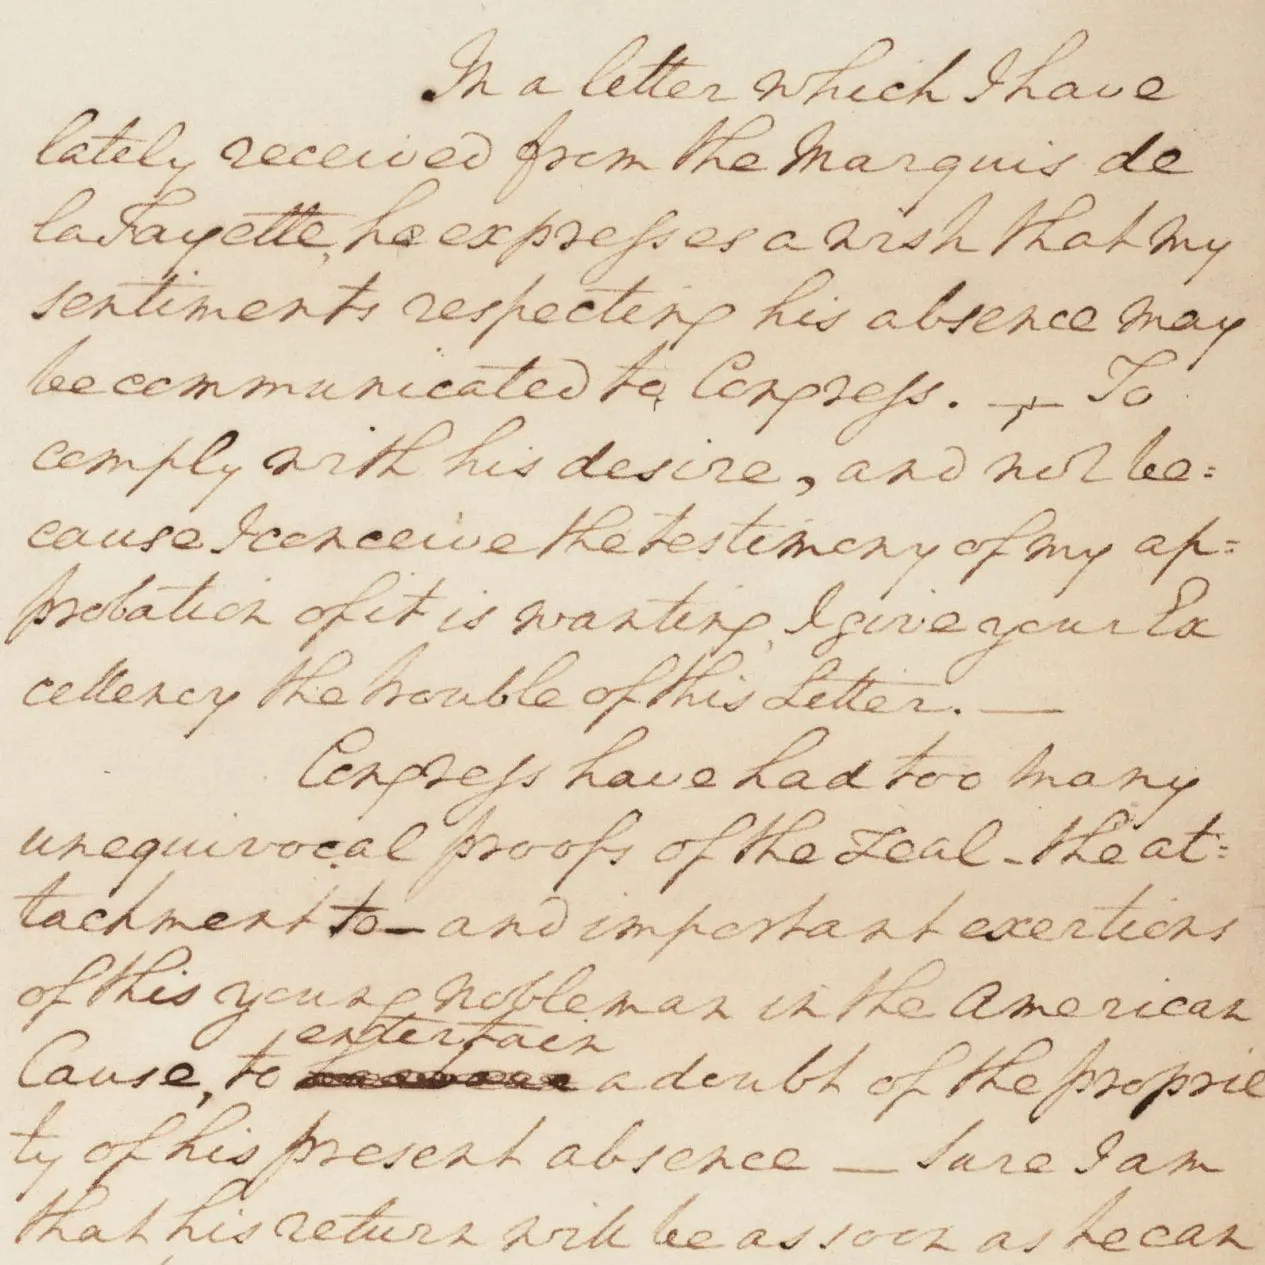 In a letter which I have
lately received from the Marquis de
la Fayette, he expresses a wish that my
sentiments respecting his absence may
be communicated to Congress. — To
comply with his desire, and not be=
cause I conceive the testimony of my ap=
probation of it is wanting, I give your Ex
cellency the trouble of this Letter. —
Congress have had too many
unequivocal proofs of the zeal - the at=
tachment to — and important exertions
of this young Nobleman in the American
entertain
Cause, to a doubt of the proprie
ty of his present absence — Sure I am
that his return will be as soon as he can